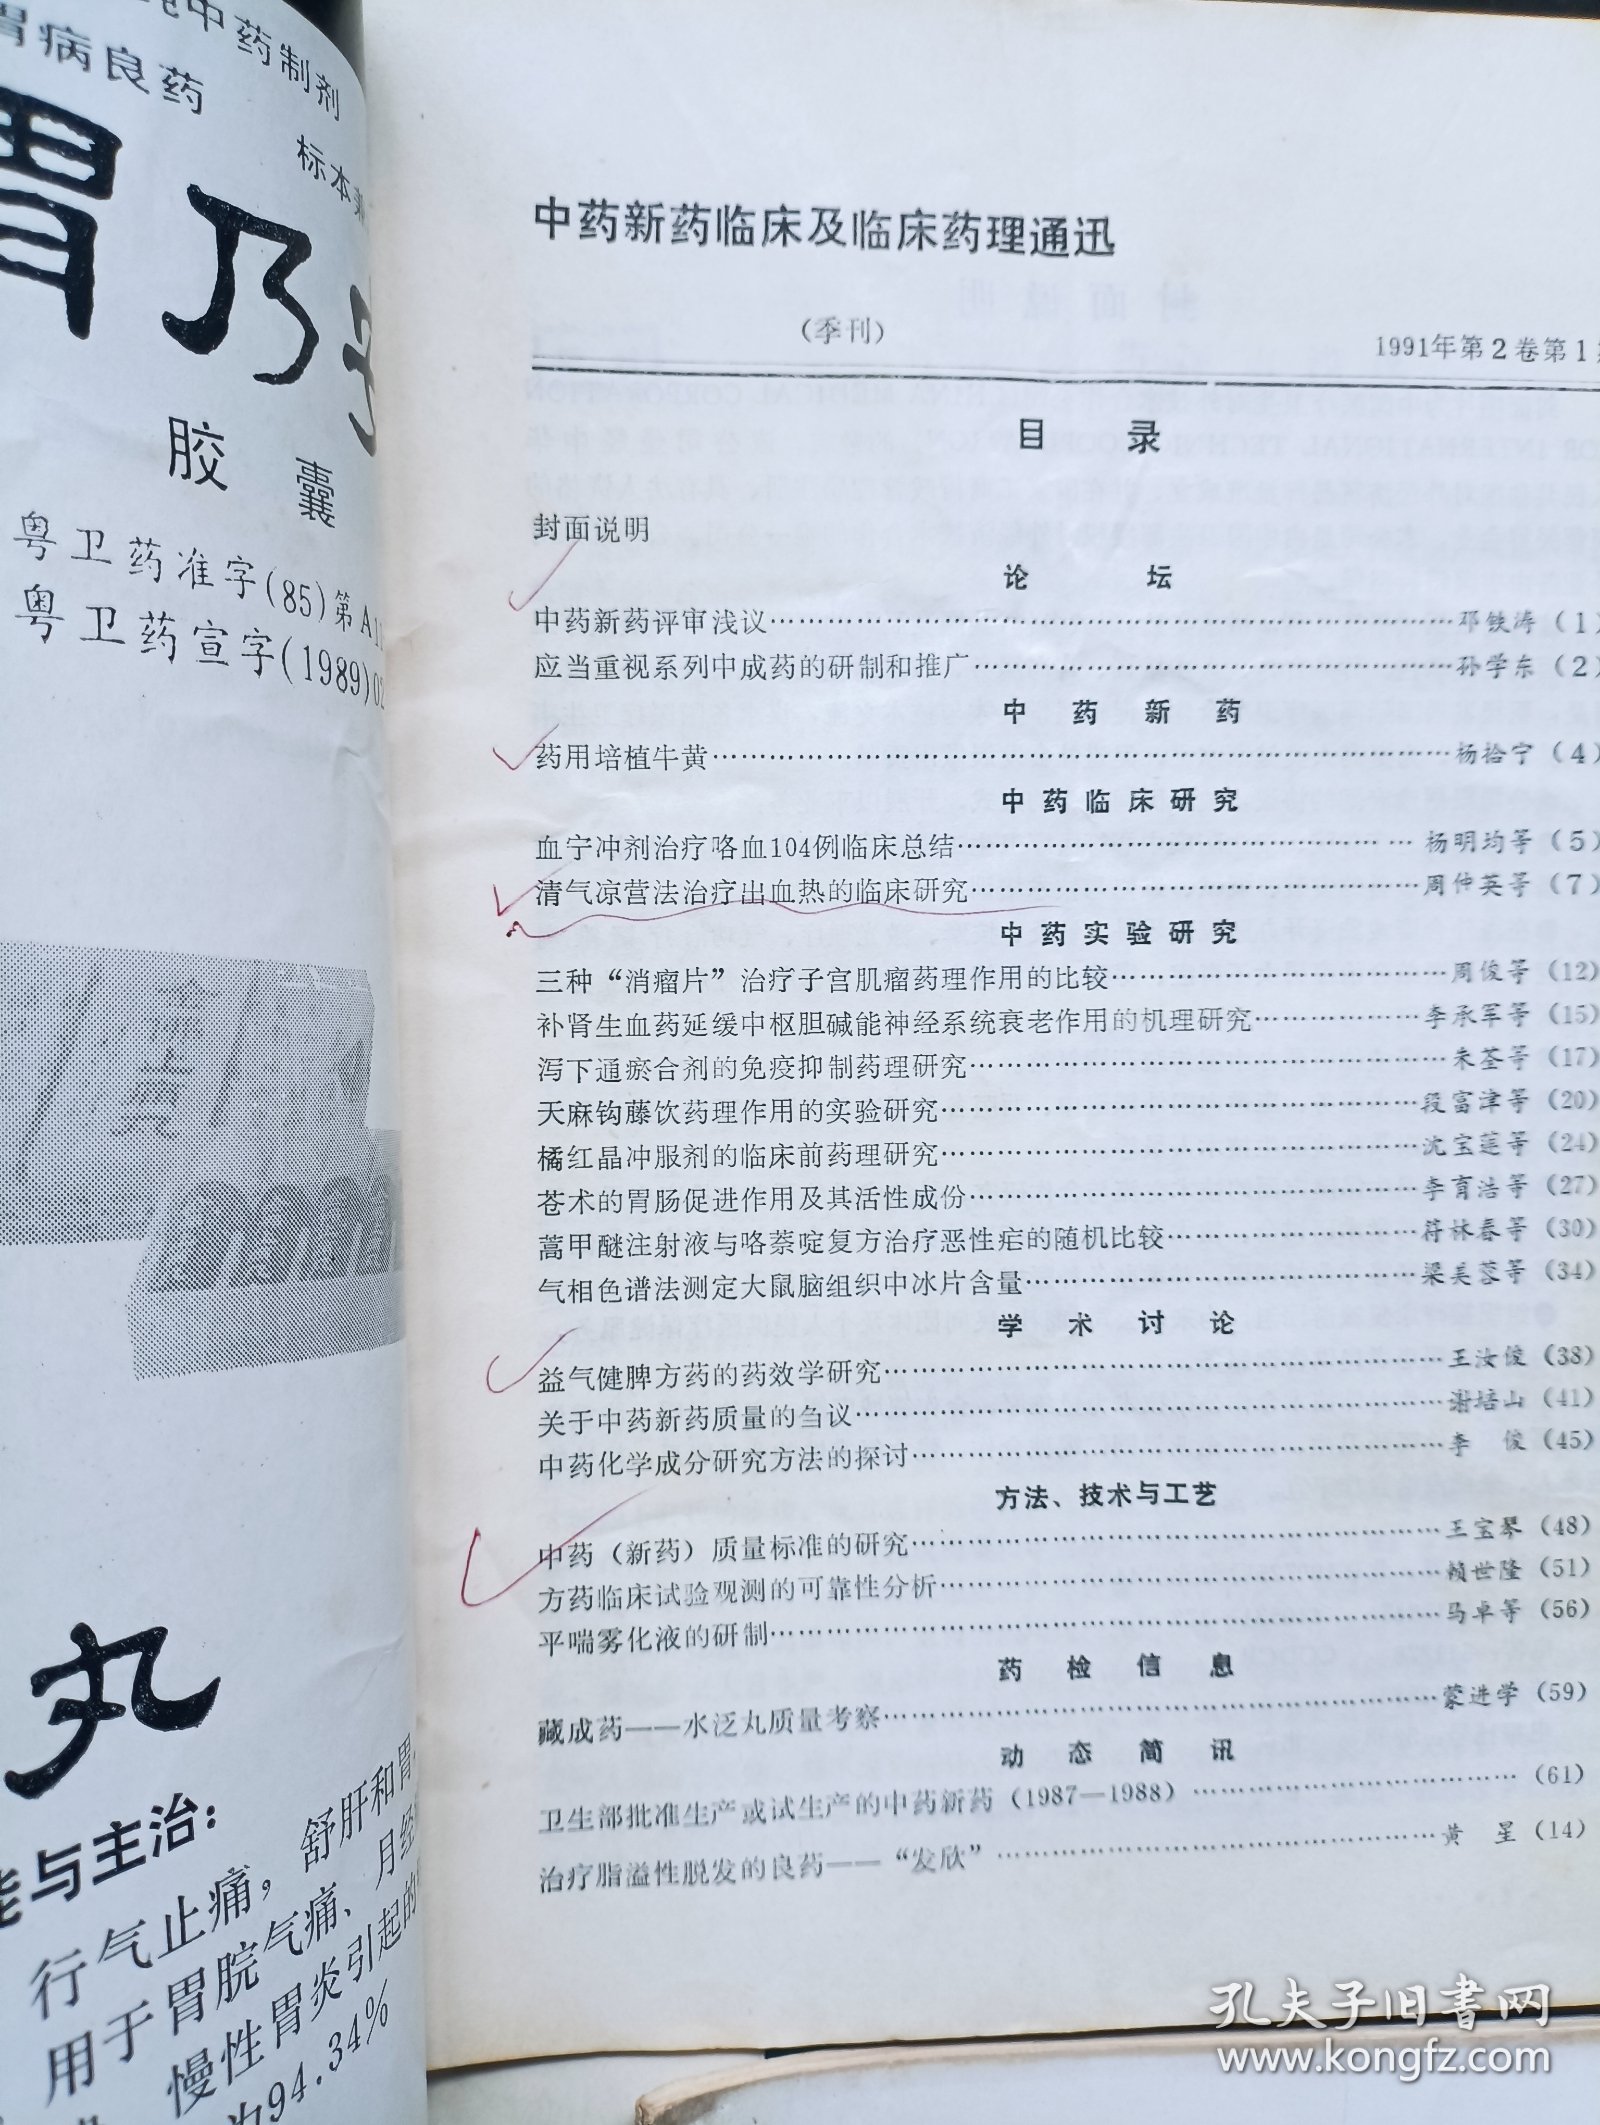 中药制剂
胃病良药
标本
胃乃
胶囊
粤卫药准字(85)第A
粤卫药宣字(1989)02
丸
能与主治:
行气止痛,舒肝和胃
用于胃脘气痛、月经
慢性胃炎引起的
为94.34%
中药新药临床及临床药理通迅
(季刊)
1991年第2卷第1期
目 录
封面说明
论 坛
中药新药评审浅议……邓铁涛(1)
应当重视系列中成药的研制和推广……孙学东(2)
中 药 新 药
药用培植牛黄……杨拾宁(4)
中药临床研究
血宁冲剂治疗咯血104例临床总结……杨明均等(5)
清气凉营法治疗出血热的临床研究……周仲英等(7)
中药实验研究
三种“消瘤片”治疗子宫肌瘤药理作用的比较……周俊等(12)
补肾生血药延缓中枢胆碱能神经系统衰老作用的机理研究……李承军等(15)
泻下通瘀合剂的免疫抑制药理研究……朱荃等(17)
天麻钩藤饮药理作用的实验研究……段富津等(20)
橘红晶冲服剂的临床前药理研究……沈宝莲等(24)
苍术的胃肠促进作用及其活性成份……李育浩等(27)
蒿甲醚注射液与咯萘啶复方治疗恶性疟的随机比较……符林春等(30)
气相色谱法测定大鼠脑组织中冰片含量……梁美蓉等(34)
学 术 讨 论
益气健脾方药的药效学研究……王汝俊(38)
关于中药新药质量的刍议……谢培山(41)
中药化学成分研究方法的探讨……李 俊(45)
方法、技术与工艺
中药(新药)质量标准的研究……王宝琴(48)
方药临床试验观测的可靠性分析……赖世隆(51)
平喘雾化液的研制……马卓等(56)
药 检 信 息
藏成药——水泛丸质量考察……蒙进学(59)
动 态 简 讯
卫生部批准生产或试生产的中药新药(1987—1988)……(61)
治疗脂溢性脱发的良药——“发欣”……黄 星(14)
孔夫子旧书网
www.kongfz.com